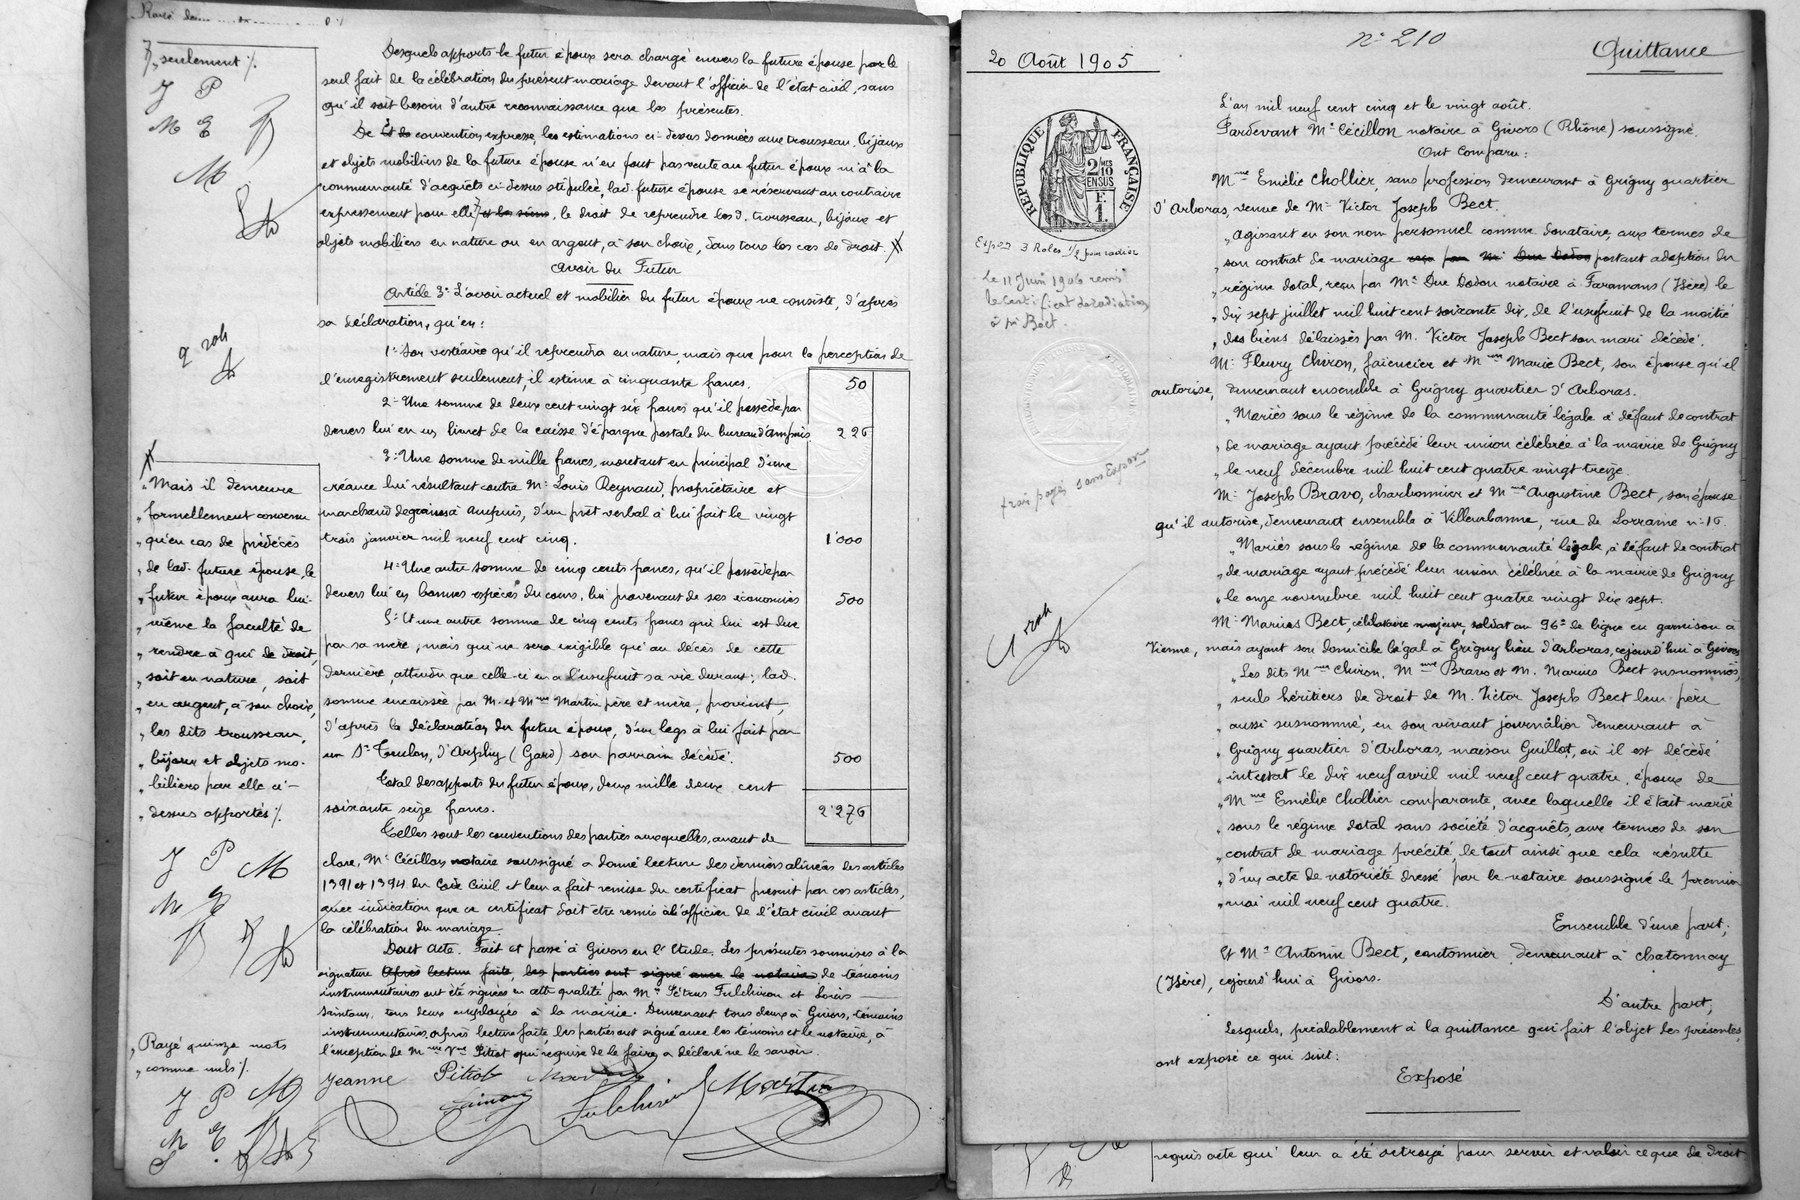 Rayé
seulement ./.
J P
M E
M
Desquels apports le futur époux sera chargé envers la future épouse par le
seul fait de la célébration du présent mariage devant l'officier de l'état civil, sans
qu'il soit besoin d'autre reconnaissance que les présentes.
De convention expresse, les estimations ci-dessus données aux trousseau, bijoux
et objets mobiliers de la future épouse n'en font pas vente au futur époux ni à la
communauté d'acquêts ci-dessus stipulée, lad. future épouse se réservant au contraire
expressement pour elle et les siens, le droit de reprendre les d. trousseau, bijoux et
objets mobiliers en nature ou en argent, à son choix, dans tous les cas de droit.
Avoir du Futur
Article 3e L'avoir actuel et mobilier du futur époux ne consiste, d'après
sa déclaration, qu'en:
1° Son vestiaire qu'il reprendra en nature, mais que pour la perception de
l'enregistrement seulement, il estime à cinquante francs. 50
2° Une somme de deux cent vingt six francs qu'il possède par
devers lui en un livret de la caisse d'épargne postale du bureau d'Ampuis 226
3° Une somme de mille francs, montant en principal d'une
créance lui résultant contre Mr Louis Reynaud, propriétaire et
marchand de grains à Ampuis, d'un prêt verbal à lui fait le vingt
trois janvier mil neuf cent cinq. 1'000
4° Une autre somme de cinq cents francs, qu'il possède par
devers lui en bonnes espèces du cours, lui provenant de ses économies 500
5° Et une autre somme de cinq cents francs qui lui est due
par sa mère, mais qui ne sera exigible qu'au décès de cette
dernière, attendu que celle-ci en a l'usufruit sa vie durant; lad.
somme encaissée par M. et Mme Martin père et mère, provient,
d'après la déclaration du futur époux, d'un legs à lui fait par
un Sr Toulon, d'Arphy (Gard) son parrain décédé. 500
Total des apports du futur époux, deux mille deux cent
soixante seize francs. 2'276
Telles sont les conventions des parties auxquelles, avant de
clore, Me Cécillon notaire soussigné a donné lecture des derniers alinéas des articles
1391 et 1394 du Code Civil et leur a fait remise du certificat prescrit par ces articles,
avec indication que ce certificat doit être remis à l'officier de l'état civil avant
la célébration du mariage.
Dont acte. Fait et passé à Givors en l'Etude. Les présentes soumises à la
signature Après lecture faite les parties ont signé avec le notaire de témoins
instrumentaires ont été signées en cette qualité par Mrs Pétrus Fulchiron et Louis
tous deux employés à la mairie. Demeurant tous deux à Givors, témoins
instrumentaires, après lecture faite, les parties ont signé avec les témoins et le notaire, à
l'exception de Mme Vve Pitiot qui requise de le faire a déclaré ne le savoir.
Jeanne Pitiot
Fulchiron Martin
"Mais il demeure
"formellement convenu
"qu'en cas de prédécès
"de lad. future épouse, le
"futur époux aura lui-
"même la faculté de
"rendre à qui de droit,
"soit en nature, soit
"en argent, à son choix,
"les dits trousseau,
"bijoux et objets mo-
"biliers par elle ci-
"dessus apportés ./.
J P M
M E
"Rayé quinze mots
"comme nuls ./.
J P M
M E
20 Août 1905
n° 210
Quittance
RÉPUBLIQUE FRANÇAISE
2/10 EN SUS
F. 1.
Exp on 3 Roles 1/2 pour radier
Le 11 Juin 1906 remis
le certificat de radiation
à Mr Bect.
frais payés sans Expon
L'an mil neuf cent cinq et le vingt août.
Pardevant Me Cécillon notaire à Givors (Rhône) soussigné.
Ont Comparu:
Mme Emélie Chollier, sans profession demeurant à Grigny quartier
d'Arboras, veuve de Mr Victor Joseph Bect.
"Agissant en son nom personnel comme donataire, aux termes de
"son contrat de mariage reçu par Me Due Dodon portant adoption du
"régime dotal, reçu par Me Due Dodon notaire à Faramans (Isère) le
"dix sept juillet mil huit cent soixante dix, de l'usufruit de la moitié
"des biens délaissés par M. Victor Joseph Bect son mari décédé.
Mr Fleury Chiron, faïencier et Mme Marie Bect, son épouse qu'il
autorise, demeurant ensemble à Grigny quartier d'Arboras.
"Mariés sous le régime de la communauté légale à défaut de contrat
"de mariage ayant précédé leur union célébrée à la mairie de Grigny
"le neuf décembre mil huit cent quatre vingt treize.
Mr Joseph Bravo, charbonnier et Mme Augustine Bect, son épouse
qu'il autorise, demeurant ensemble à Villeurbanne, rue de Lorraine n° 16.
"Mariés sous le régime de la communauté légale, à défaut de contrat
"de mariage ayant précédé leur union célébrée à la mairie de Grigny
"le onze novembre mil huit cent quatre vingt dix sept.
Mr Marius Bect, célibataire majeur, soldat au 96e de ligne en garnison à
Vienne, mais ayant son domicile légal à Grigny lieu d'Arboras, cejourd'hui à Givors
"Les dits Mme Chiron, Mme Bravo et M. Marius Bect susnommés,
"seuls héritiers de droit de M. Victor Joseph Bect leur père
"aussi susnommé, en son vivant journalier demeurant à
"Grigny quartier d'Arboras, maison Guillot, où il est décédé
"intestat le dix neuf avril mil neuf cent quatre, époux de
"Mme Emélie Chollier comparante, avec laquelle il était marié
"sous le régime dotal sans société d'acquêts, aux termes de son
"contrat de mariage précité, le tout ainsi que cela résulte
"d'un acte de notoriété dressé par le notaire soussigné le premier
"mai mil neuf cent quatre.
Ensemble d'une part;
Et Mr Antonin Bect, cantonnier demeurant à Chatonnay
(Isère), cejourd'hui à Givors.
D'autre part,
Lesquels, préalablement à la quittance qui fait l'objet des présentes,
ont exposé ce qui suit:
Exposé
requis acte qui leur a été octroyé pour servir et valoir ce que de droit